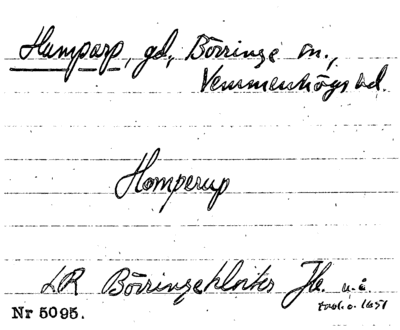 Humparp, gd., Börringe sn.,
Vemmenhögs hd.
Homperup
LR Börringekloster Jb. u.å.
troh. o. 1651
Nr 5095.